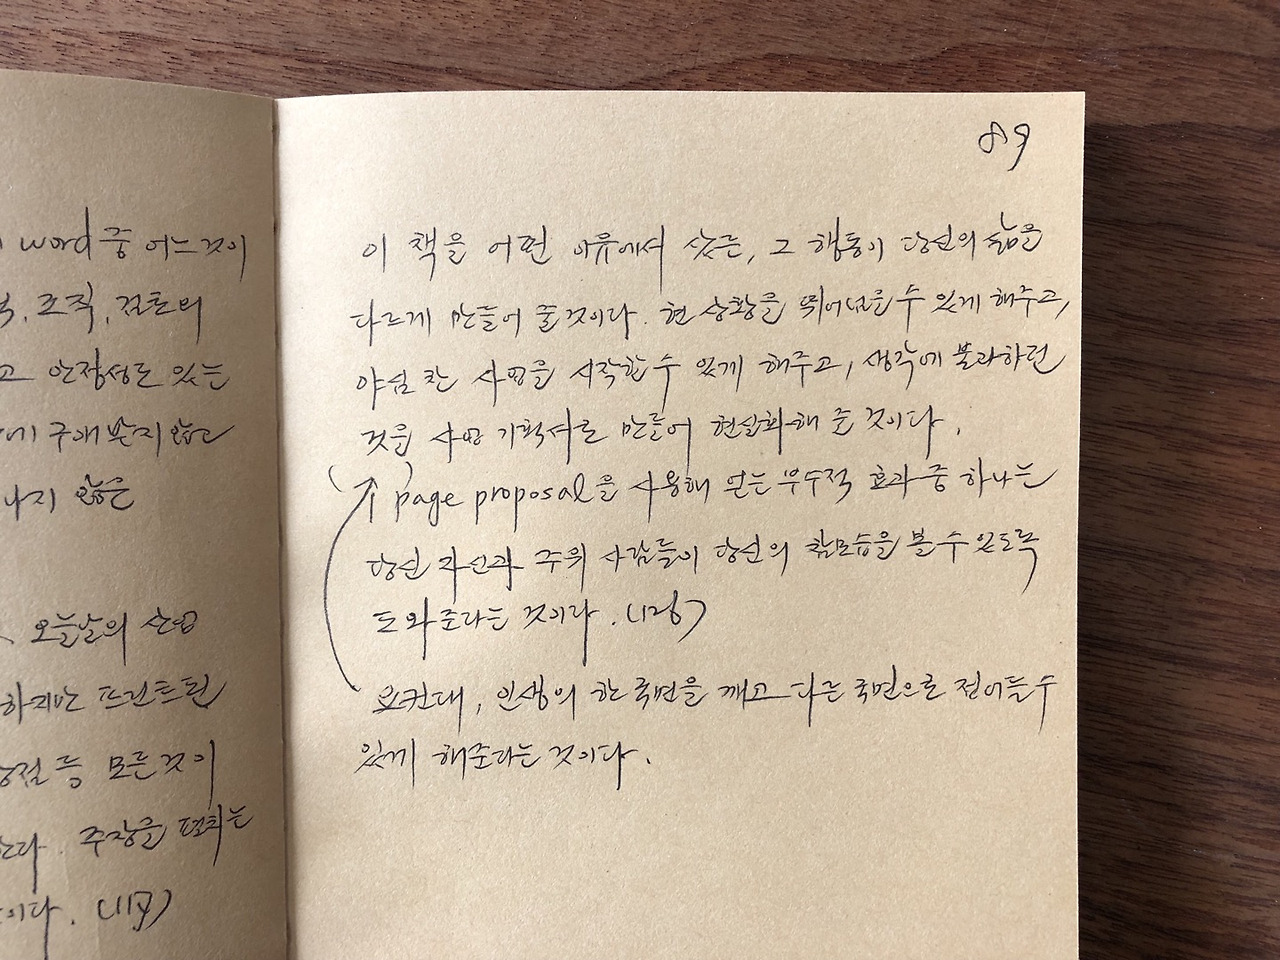 word 중 어느것이
조직, 검토의
고 안정성도 있는
에 구애 받지 않고
나지 않는
오늘날의 산업
하지만 프린트된
장점 등 모든것이
한다. 주장을 펼치는
것이다. (117)
89
이 책을 어떤 이유에서 샀든, 그 행동이 당신의 삶을
다르게 만들어 줄것이다. 현 상황을 뛰어넘을 수 있게 해주고,
야심 찬 사업을 시작할 수 있게 해주고, 생각에 불과하던
것을 사업 기획서로 만들어 현실화해 준 것이다.
( 1 ) page proposal을 사용해 얻는 부수적 효과 중 하나는
당신 자신과 주위 사람들이 당신의 참모습을 볼 수 있도록
도와준다는 것이다. (126)
요컨대, 인생의 한 국면을 깨고 다른 국면으로 접어들 수
있게 해준다는 것이다.